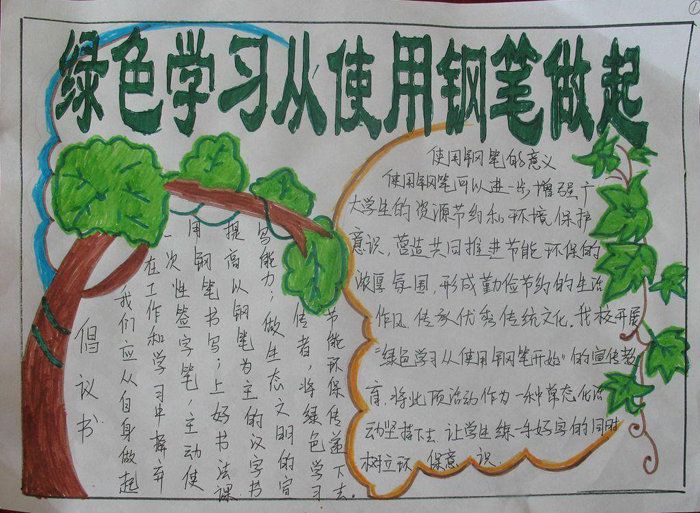 绿色学习从使用钢笔做起
倡议书
我们应从自身做起
在工作和学习中摒弃
一次性签字笔，主动使
用钢笔书写；上好书法课
提高以钢笔为主的汉字书
写能力；做生态文明的宣
传者，将绿色学习
节能环保传递下去。
使用钢笔的意义
使用钢笔可以进一步增强广
大学生的资源节约和环境保护
意识，营造共同推进节能环保的
浓厚氛围，形成勤俭节约的生活
作风，传承优秀传统文化。我校开展
“绿色学习从使用钢笔开始”的宣传教
育，将此项活动作为一种常态化活
动坚持下去，让学生练一手好字的同时
树立环保意识